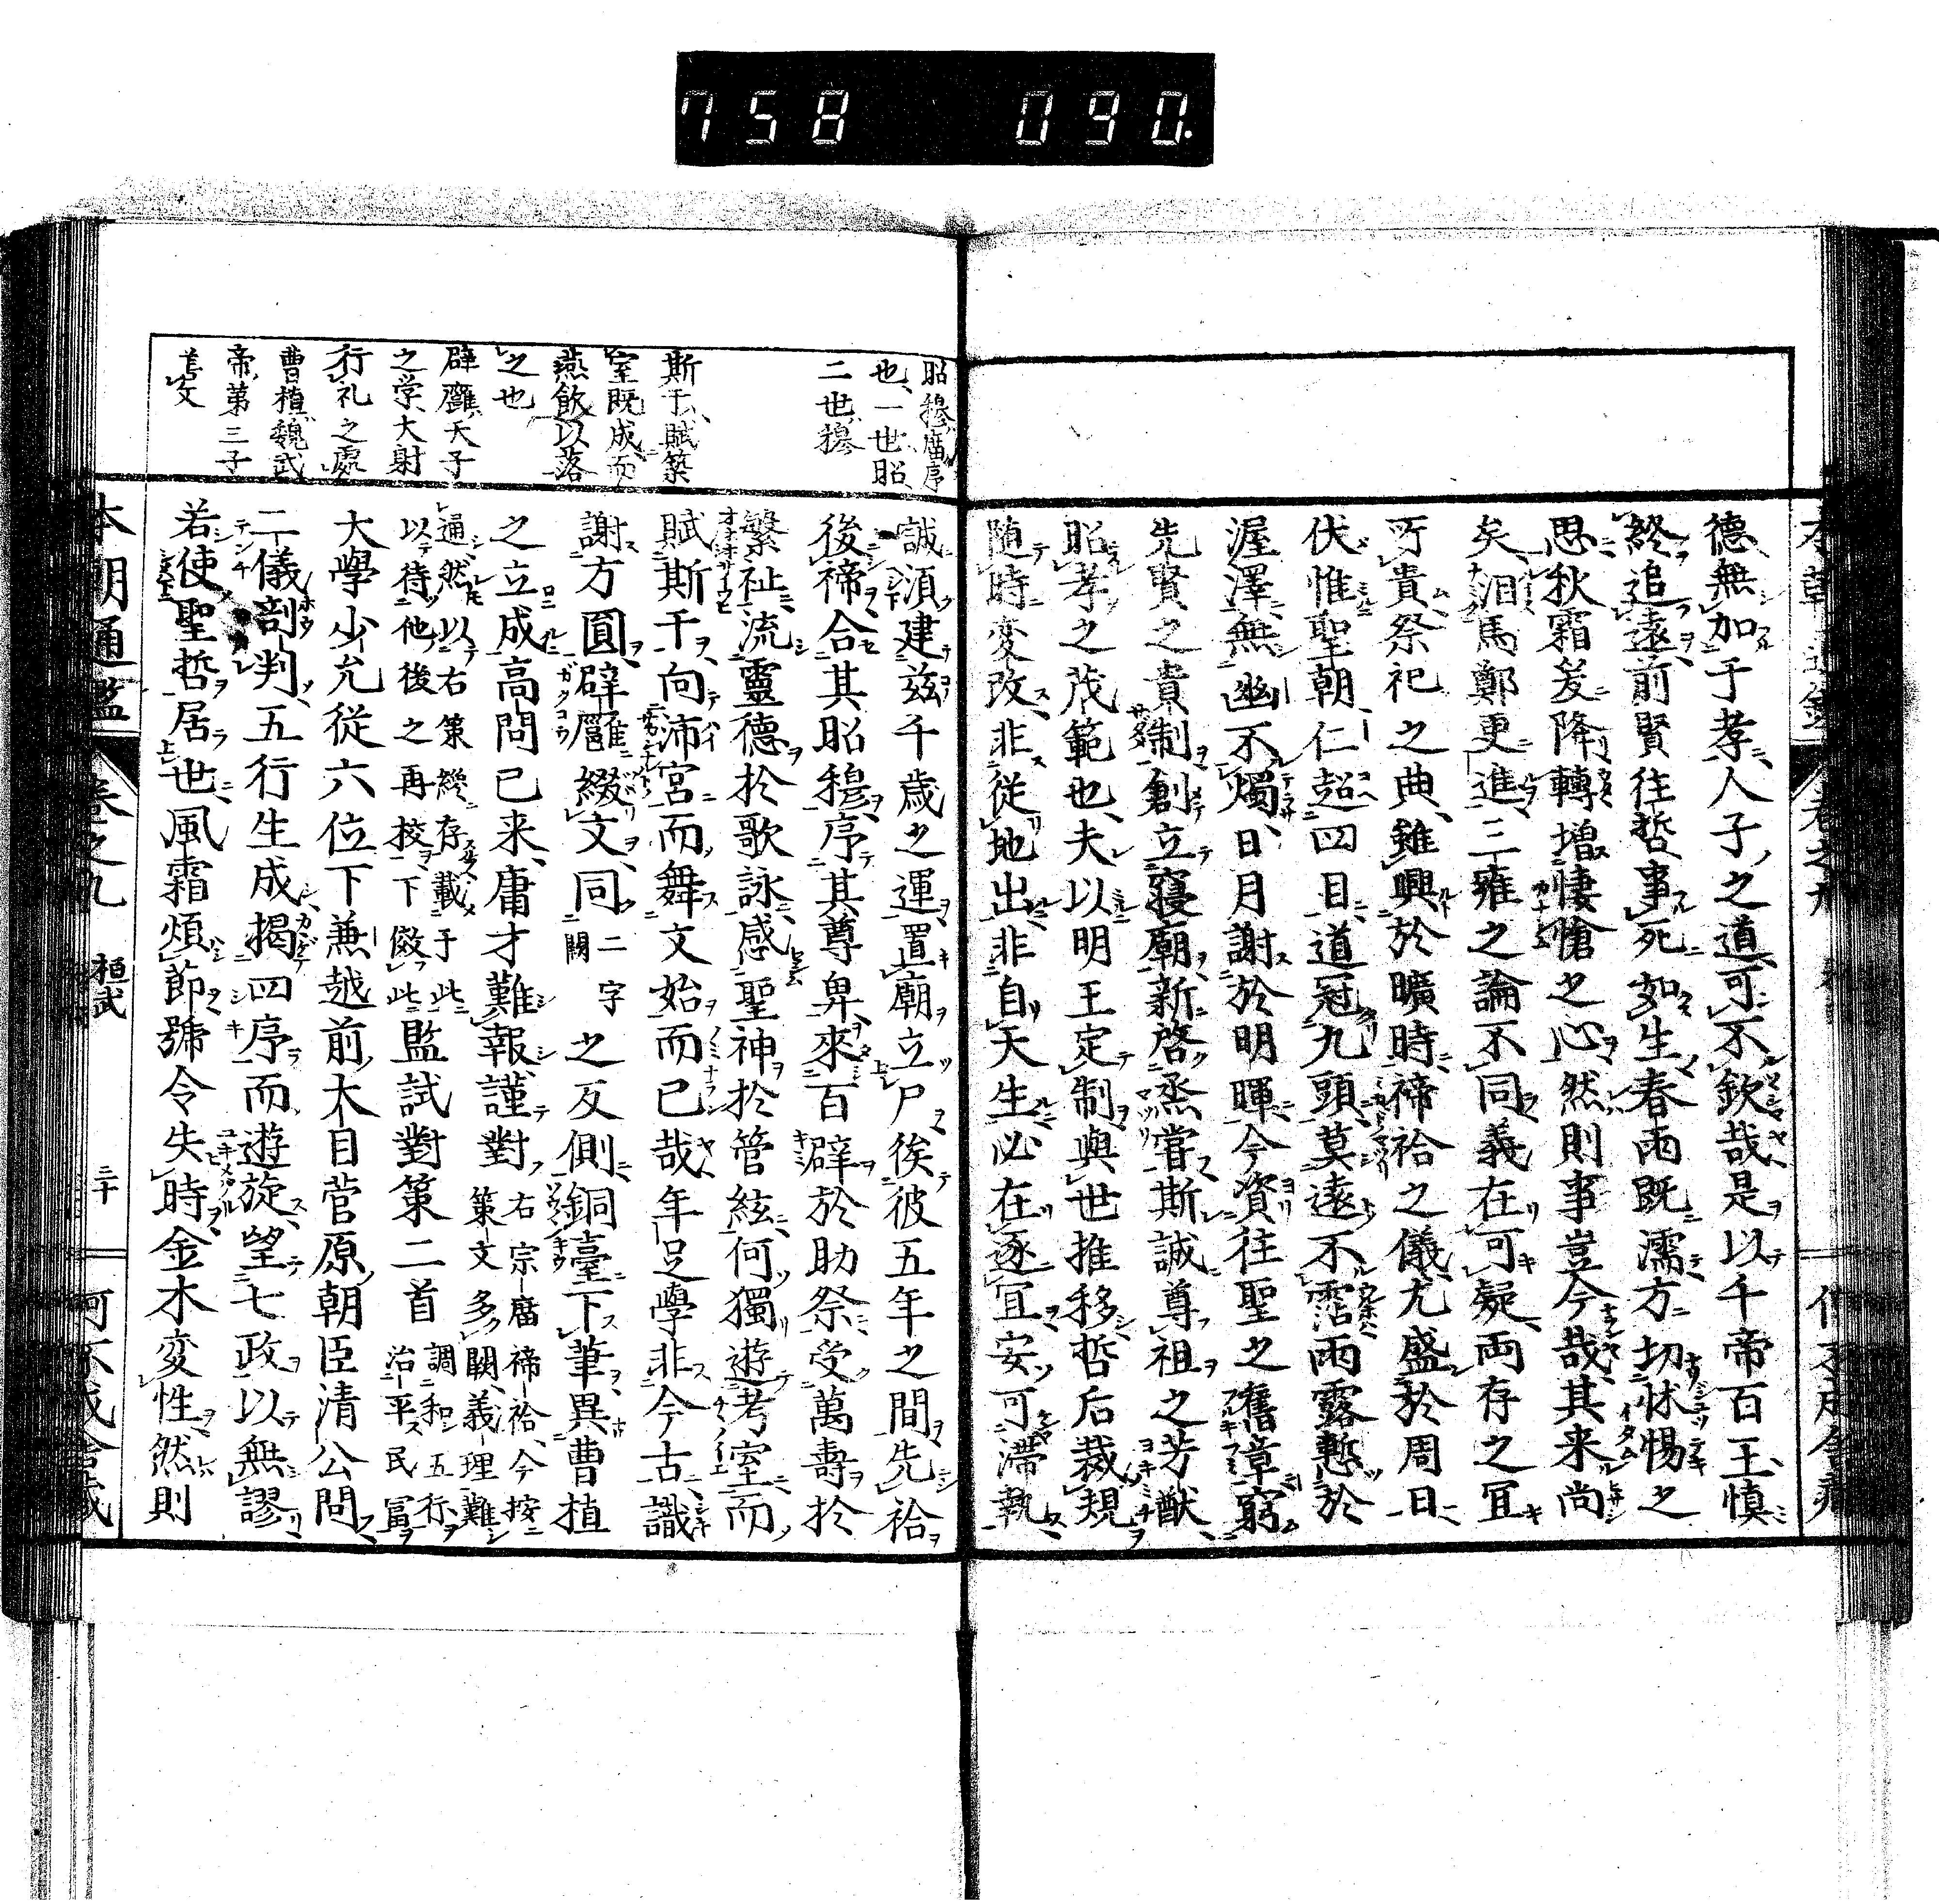 758 090.
德無加于孝人子之道可不欽哉是以千帝百王慎
終追遠前賢往哲事死如生春雨既濡方切怵惕之
思秋霜爰降轉増悽愴之心然則事豈今哉其来尚
矣洎馬鄭更進三雍之論不同義在可疑両存之冝
所貴祭祀之典雖興於曠時禘祫之儀尤盛於周日
伏惟聖朝仁超四目道冠九頭莫遠不霑雨露慙於
渥澤無幽不燭日月謝於明暉今資往聖之舊章窮
先賢之貴制創立寝廟新啓烝甞斯誠尊祖之芳猷
昭孝之茂範也夫以明王定制與世推移哲后裁規
随時変改非従地出非自天生必在逐冝安可滞執
昭穆庿序
也一世昭
二世穆
斯干賦築
室既成而
燕飲以落
之也
辟廱天子
之学大射
行礼之處
曹植魏武
帝第三子
善文
誠須建茲千歳之運置廟立尸俟彼五年之間先祫
後禘合其昭穆序其尊卑來百辟於助祭受萬壽於
繁祉流靈德於歌詠感聖神於管絃何獨遊考室而
賦斯干向沛宮而舞文始而已哉年足學非今古識
謝方圓辟廱綴文同二字闕之反側銅臺下筆異曹植
之立成高問已来庸才難報謹對右宗庿禘祫今按
策文多闕義理難
通然以右策縡存載于此
以待他後之再校下倣此監試對策二首調和五行
治平民冨
大學少允従六位下兼越前大目菅原朝臣清公問
二儀剖判五行生成揭四序而遊旋望七政以無謬
若使聖哲居世風霜煩節號令失時金木変性然則
本朝通鑑 卷之九 桓武 三十